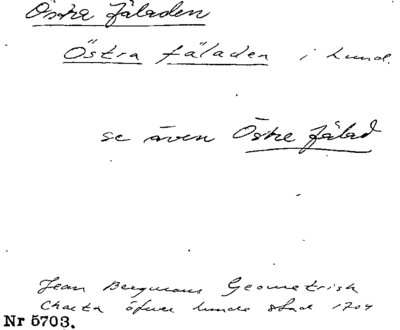 Östra fäladen
Östra fäladen i Lund.
se även Östre fälad
Jean Bergmans Geometrisk
Charta öfver Lunds stad 1704
Nr 5703.